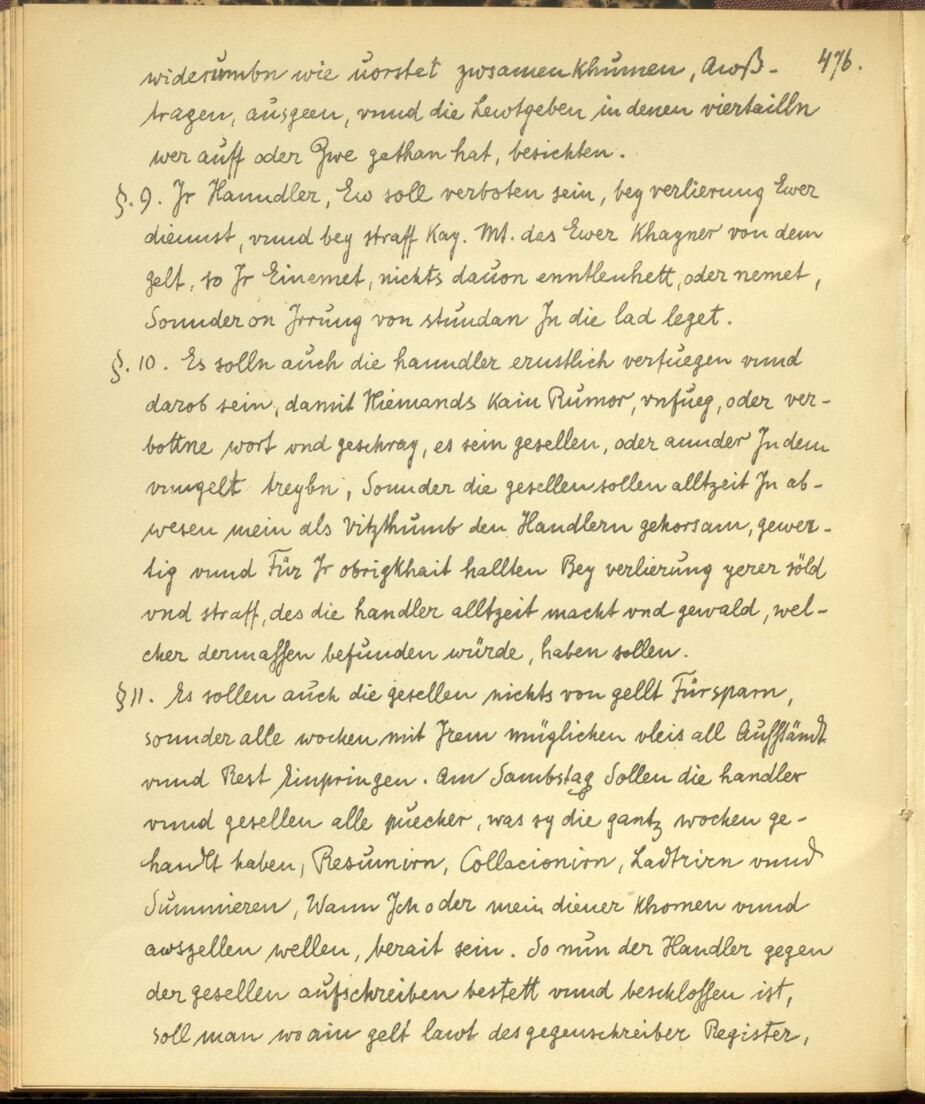 476.
widerumbn wie uorstet zwsamen khumen, Awß-
tragen, ausgeen, vnnd die Lewtgeben in denen viertailln
wer auff oder Zwe gethan hat, besichten.
§. 9. Jr Hanndler, Ew soll verboten sein, bey verlierung Ewer
diennst, vnnd bey straff Kay. Mt. das Ewer khagner von dem
gelt, so Jr Einemet, nichts dauon enntlenhett, oder nemet,
Sonnder on Jrrung von stundan Jn die lad leget.
§. 10. Es solln auch die hanndler ernstlich verfuegen vnnd
darob sein, damit Niemands kain Rumor, vnfueg, oder ver-
bottne wort vnd geschray, es sein gesellen, oder annder Jn dem
vnngelt treybn, Sonnder die gesellen sollen alltzeit Jn ab-
wesen mein als Vitzthumb den Handlern gehorsam, gewer-
tig vnnd Für Jr obrigkhait hallten Bey verlierung yerer söld
vnd straff, des die handler alltzeit macht vnd gewald, wel-
cher dermassen befunden würde, haben sollen.
§ 11. Es sollen auch die gesellen nichts von gellt Fürsparn,
sonnder alle wochen mit Jrem müglichen vleis all Aufständt
vnnd Rest Einpringen. Am Sambstag Sollen die handler
vnnd gesellen alle puecher, was sy die gantz wochen ge-
handlt haben, Resumirn, Collacionirn, Ladtrirn vnnd
Summieren, Wann Jch oder mein diener khomen vnnd
awszellen wellen, berait sein. So nun der Handler gegen
der gesellen aufschreiben bestett vnnd beschlossen ist,
soll man wo ain gelt lawt des gegenschreiber Register,